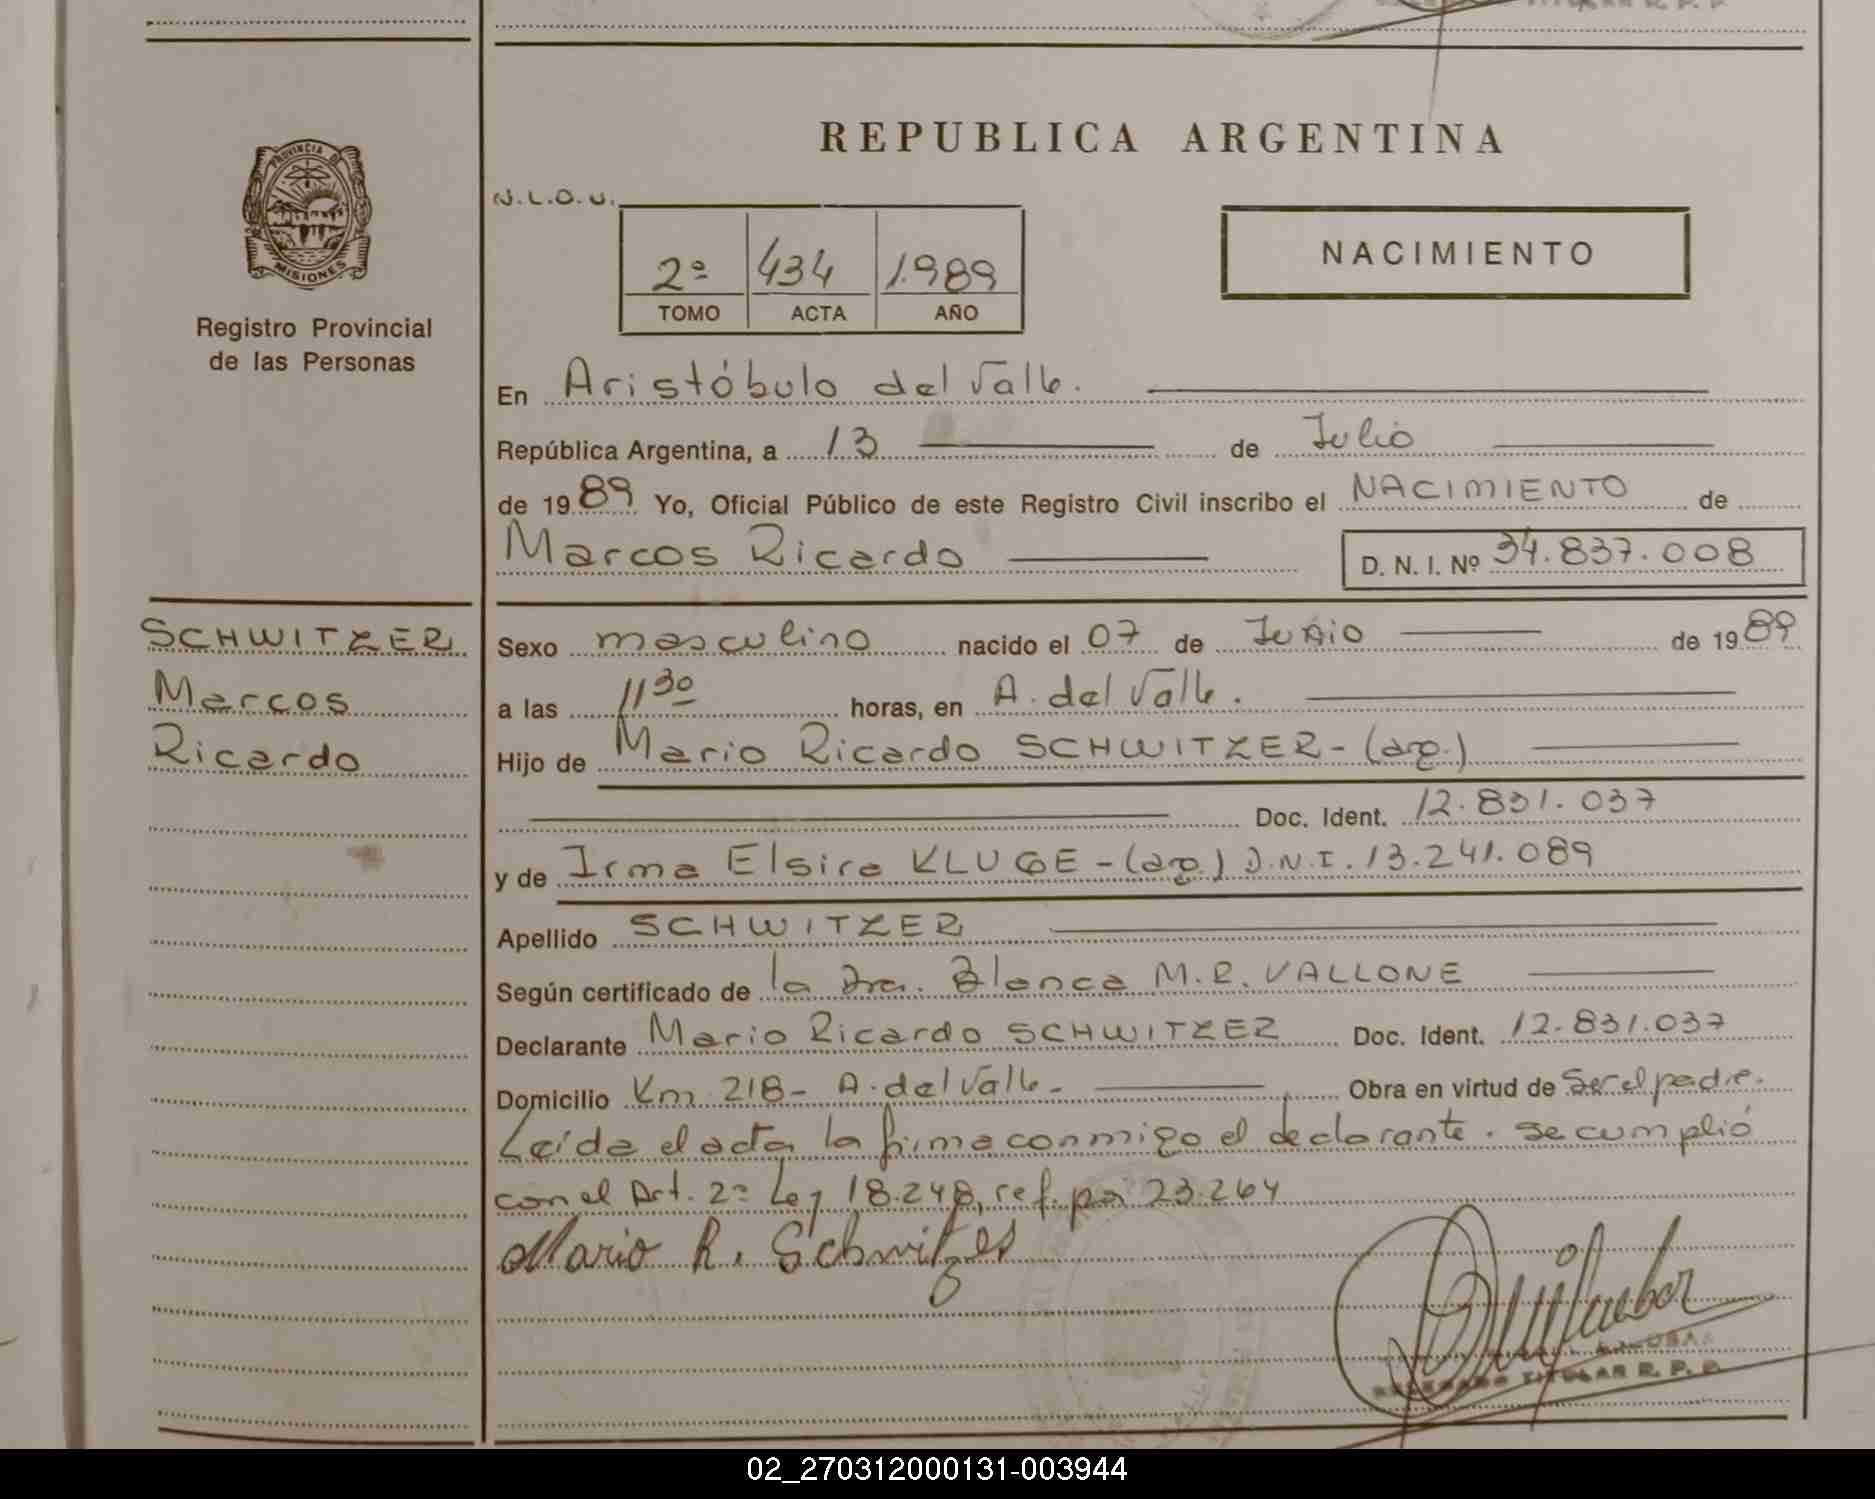 REPUBLICA ARGENTINA
PROVINCIA DE
MISIONES
Registro Provincial
de las Personas
N.L.O.U.
2º 434 1.989
TOMO ACTA AÑO
NACIMIENTO
En Aristóbulo del Valle.
República Argentina, a 13 de Julio
de 1989 Yo, Oficial Público de este Registro Civil inscribo el NACIMIENTO de
Marcos Ricardo D. N. I. Nº 34.837.008
SCHWITZER
Marcos
Ricardo
Sexo masculino nacido el 07 de Junio de 1989
a las 11 30 horas, en A. del Valle.
Hijo de Mario Ricardo SCHWITZER - (arg.)
Doc. Ident. 12.831.037
y de Irma Elsira KLUGE - (arg.) D.N.I. 13.241.089
Apellido SCHWITZER
Según certificado de la Dra. Blanca M.R. VALLONE
Declarante Mario Ricardo SCHWITZER Doc. Ident. 12.831.037
Domicilio Km 218 - A. del Valle - Obra en virtud de ser el padre.
Leída el acta la firma conmigo el declarante. Se cumplió
con el Art. 2º Ley 18.248, ref. por 23.264
Mario R. Schwitzer
TITULAR R. P. P.
02_270312000131-003944